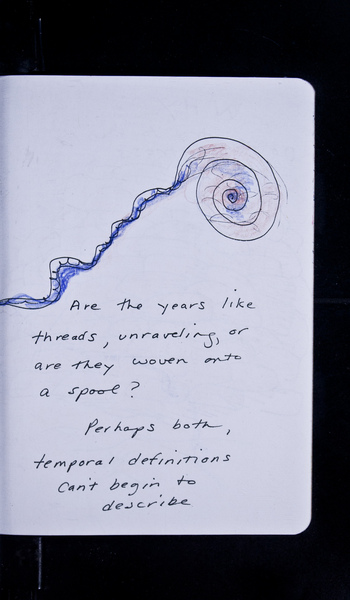 Are the years like
threads, unraveling, or
are they woven onto
a spool?
Perhaps both,
temporal definitions
Can't begin to
describe